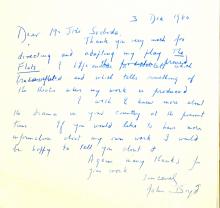 3 Dec 1980
Dear Mr
Thank you very much for
directing and adapting my play The
Flats. I
and
the theatre when my work is produced
I wish I knew more about
the drama in your country at the present
time. If you would like to have more
information about my own work I would
be happy to tell you about it
Again many thanks for
your work
Sincerely
John Boyd